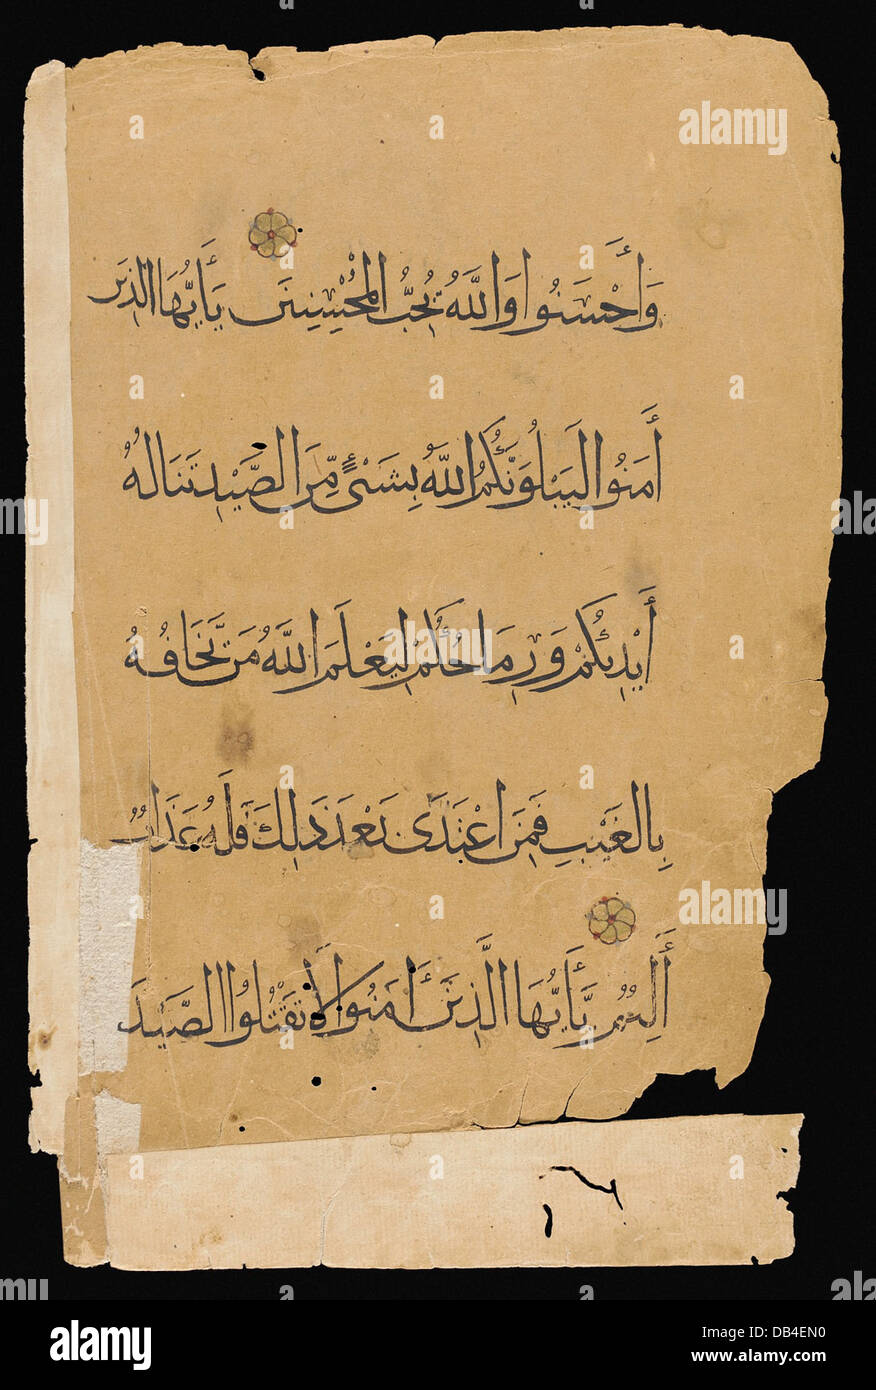 وَأَحْسَنُوا وَاللَّهُ يُحِبُّ الْمُحْسِنِينَ يَأَيُّهَا الَّذِينَ
أَمَنُوا لَيَبْلُوَنَّكُمُ اللَّهُ بِشَىْءٍ مِّنَ الصَّيْدِ تَنَالُهُ
أَيْدِيكُمْ وَرِمَاحُكُمْ لِيَعْلَمَ اللَّهُ مَن يَخَافُهُ
بِالْغَيْبِ فَمَنِ اعْتَدَى بَعْدَ ذَلِكَ فَلَهُ عَذَابٌ
أَلِيمٌ يَأَيُّهَا الَّذِينَ ءَامَنُوا لَا تَقْتُلُوا الصَّيْدَ
alamy
alamy
alamy
Image ID: DB4EN0
www.alamy.com